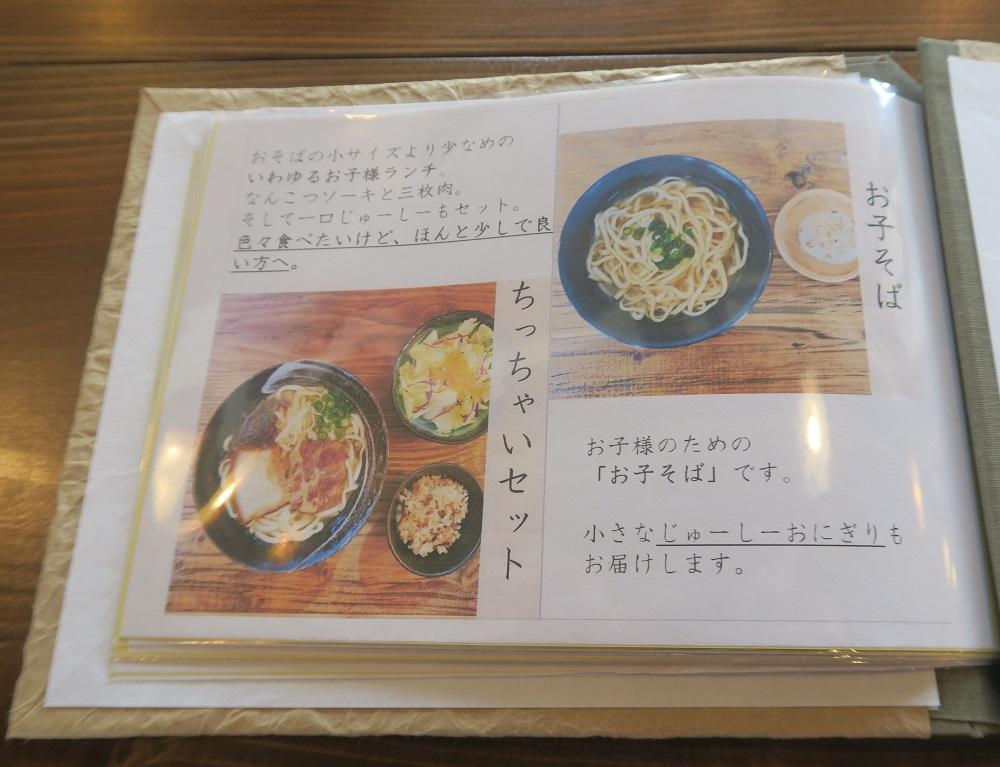 おそばの小サイズより少なめの
いわゆるお子様ランチ。
なんこつソーキと三枚肉。
そして一口じゅーしーもセット。
色々食べたいけど、ほんと少しで良
い方へ。
ちっちゃいセット
お子そば
お子様のための
「お子そば」です。
小さなじゅーしーおにぎりも
お届けします。